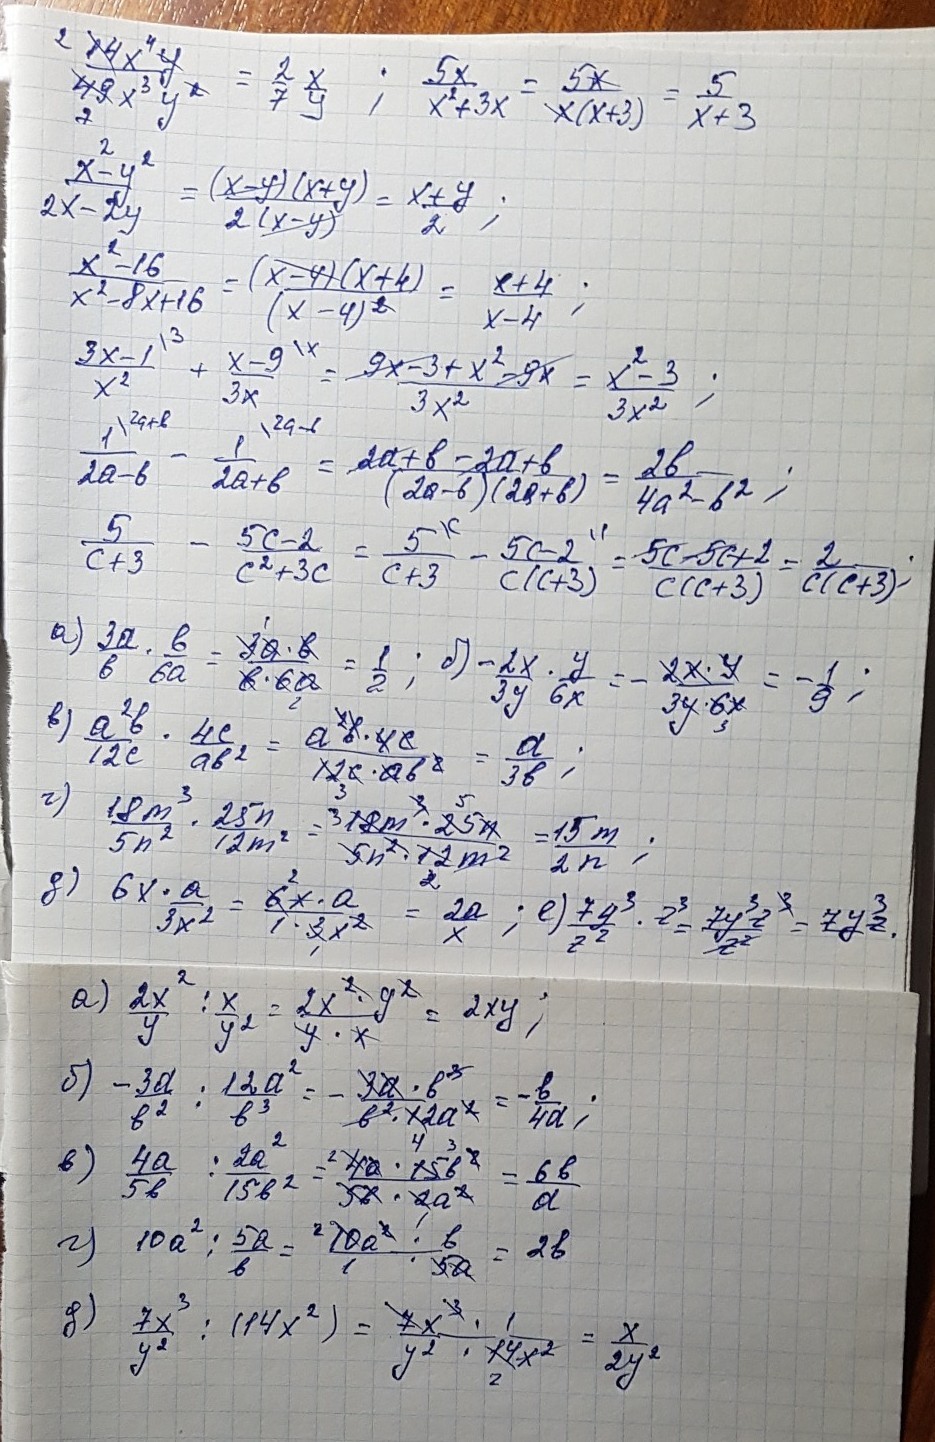 14x⁴y/49x³y² = 2/7 x/y ; 5x/(x²+3x) = 5x/(x(x+3)) = 5/(x+3)
(x²-y²)/(2x-2y) = (x-y)(x+y)/(2(x-y)) = (x+y)/2 ;
(x²-16)/(x²-8x+16) = (x-4)(x+4)/(x-4)² = (x+4)/(x-4) ;
(3x-1)/x² \3 + (x-9)/3x \x = (9x-3+x²-9x)/3x² = (x²-3)/3x² ;
1/(2a-в) \2a+в - 1/(2a+в) \2a-в = (2a+в-2a+в)/((2a-в)(2a+в)) = 2в/(4a²-в²) ;
5/(c+3) - (5c-2)/(c²+3c) = 5/(c+3) \c - (5c-2)/(c(c+3)) \1 = (5c-5c+2)/(c(c+3)) = 2/(c(c+3)) ;
а) 3a/в · в/6a = 3a·в/в·6a = 1/2 ; б) -2x/3y · y/6x = - 2x·y/3y·6x = -1/9 ;
в) a²в/12c · 4c/aв² = a²в·4c/12c·aв² = a/3в ;
г) 18m³/5n² · 25n/12m² = 18m³·25n/5n²·12m² = 15m/2n ;
д) 6x · a/3x² = 6x·a/1·3x² = 2a/x ; е) 7y³/z² · z³ = 7y³z³/z² = 7y³z.
а) 2x²/y : x/y² = 2x²·y²/y·x = 2xy ;
б) -3a/в² : 12a²/в³ = - 3a·в³/в²·12a² = -в/4a ;
в) 4a/5в : 2a²/15в² = 4a·15в²/5в·2a² = 6в/a
г) 10a² : 5a/в = 10a²/1 · в/5a = 2в
д) 7x³/y² : (14x²) = 7x³·1/y²·14x² = x/2y²